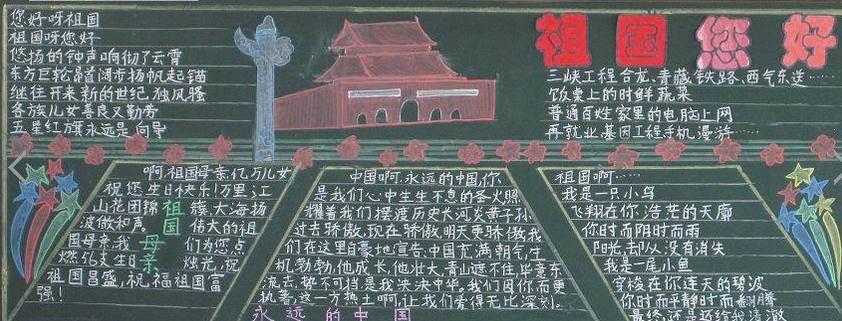 您好呀祖国
祖国呀您好
悠扬的钟声响彻了云霄
东方巨轮昂首阔步扬帆起锚
继往开来新的世纪独风骚
各族儿女善良又勤劳
五星红旗永远是向导
祖国您好
三峡工程合龙、青藏铁路、西气东送……
饭桌上的时鲜蔬菜
普通百姓家里的电脑上网
再就业基因工程手机漫游……
啊祖国母亲,亿万儿女
祝您生日快乐!万里江
山花团锦 族,大海扬
波做和声。 伟大的祖
国母亲我 们为您点
燃化支生日 烛光,祝
祖国昌盛,祝福祖国富
强!
祖国
母亲
中国啊,永远的中国,你
是我们心中生生不息的圣火照
耀着我们摆渡历史长河炎黄子孙
过去骄傲,现在骄傲,明天更骄傲我
们在这里自豪地宣告,中国充满朝气,生
机勃勃,他成长,他壮大,青山遮不住,毕竟东
流去,势不可挡是我泱泱中华,我们因你而更
执著,这一方热土啊,让我们爱得无比深刻。
永远的中国
祖国啊……
我是一只小鸟
飞翔在你浩茫的天廓
你时而阴时而雨
阳光却从没有消失
我是一尾小鱼
穿梭在你连天的碧波
你时而平静时而翻腾
最终还是还给我清澈